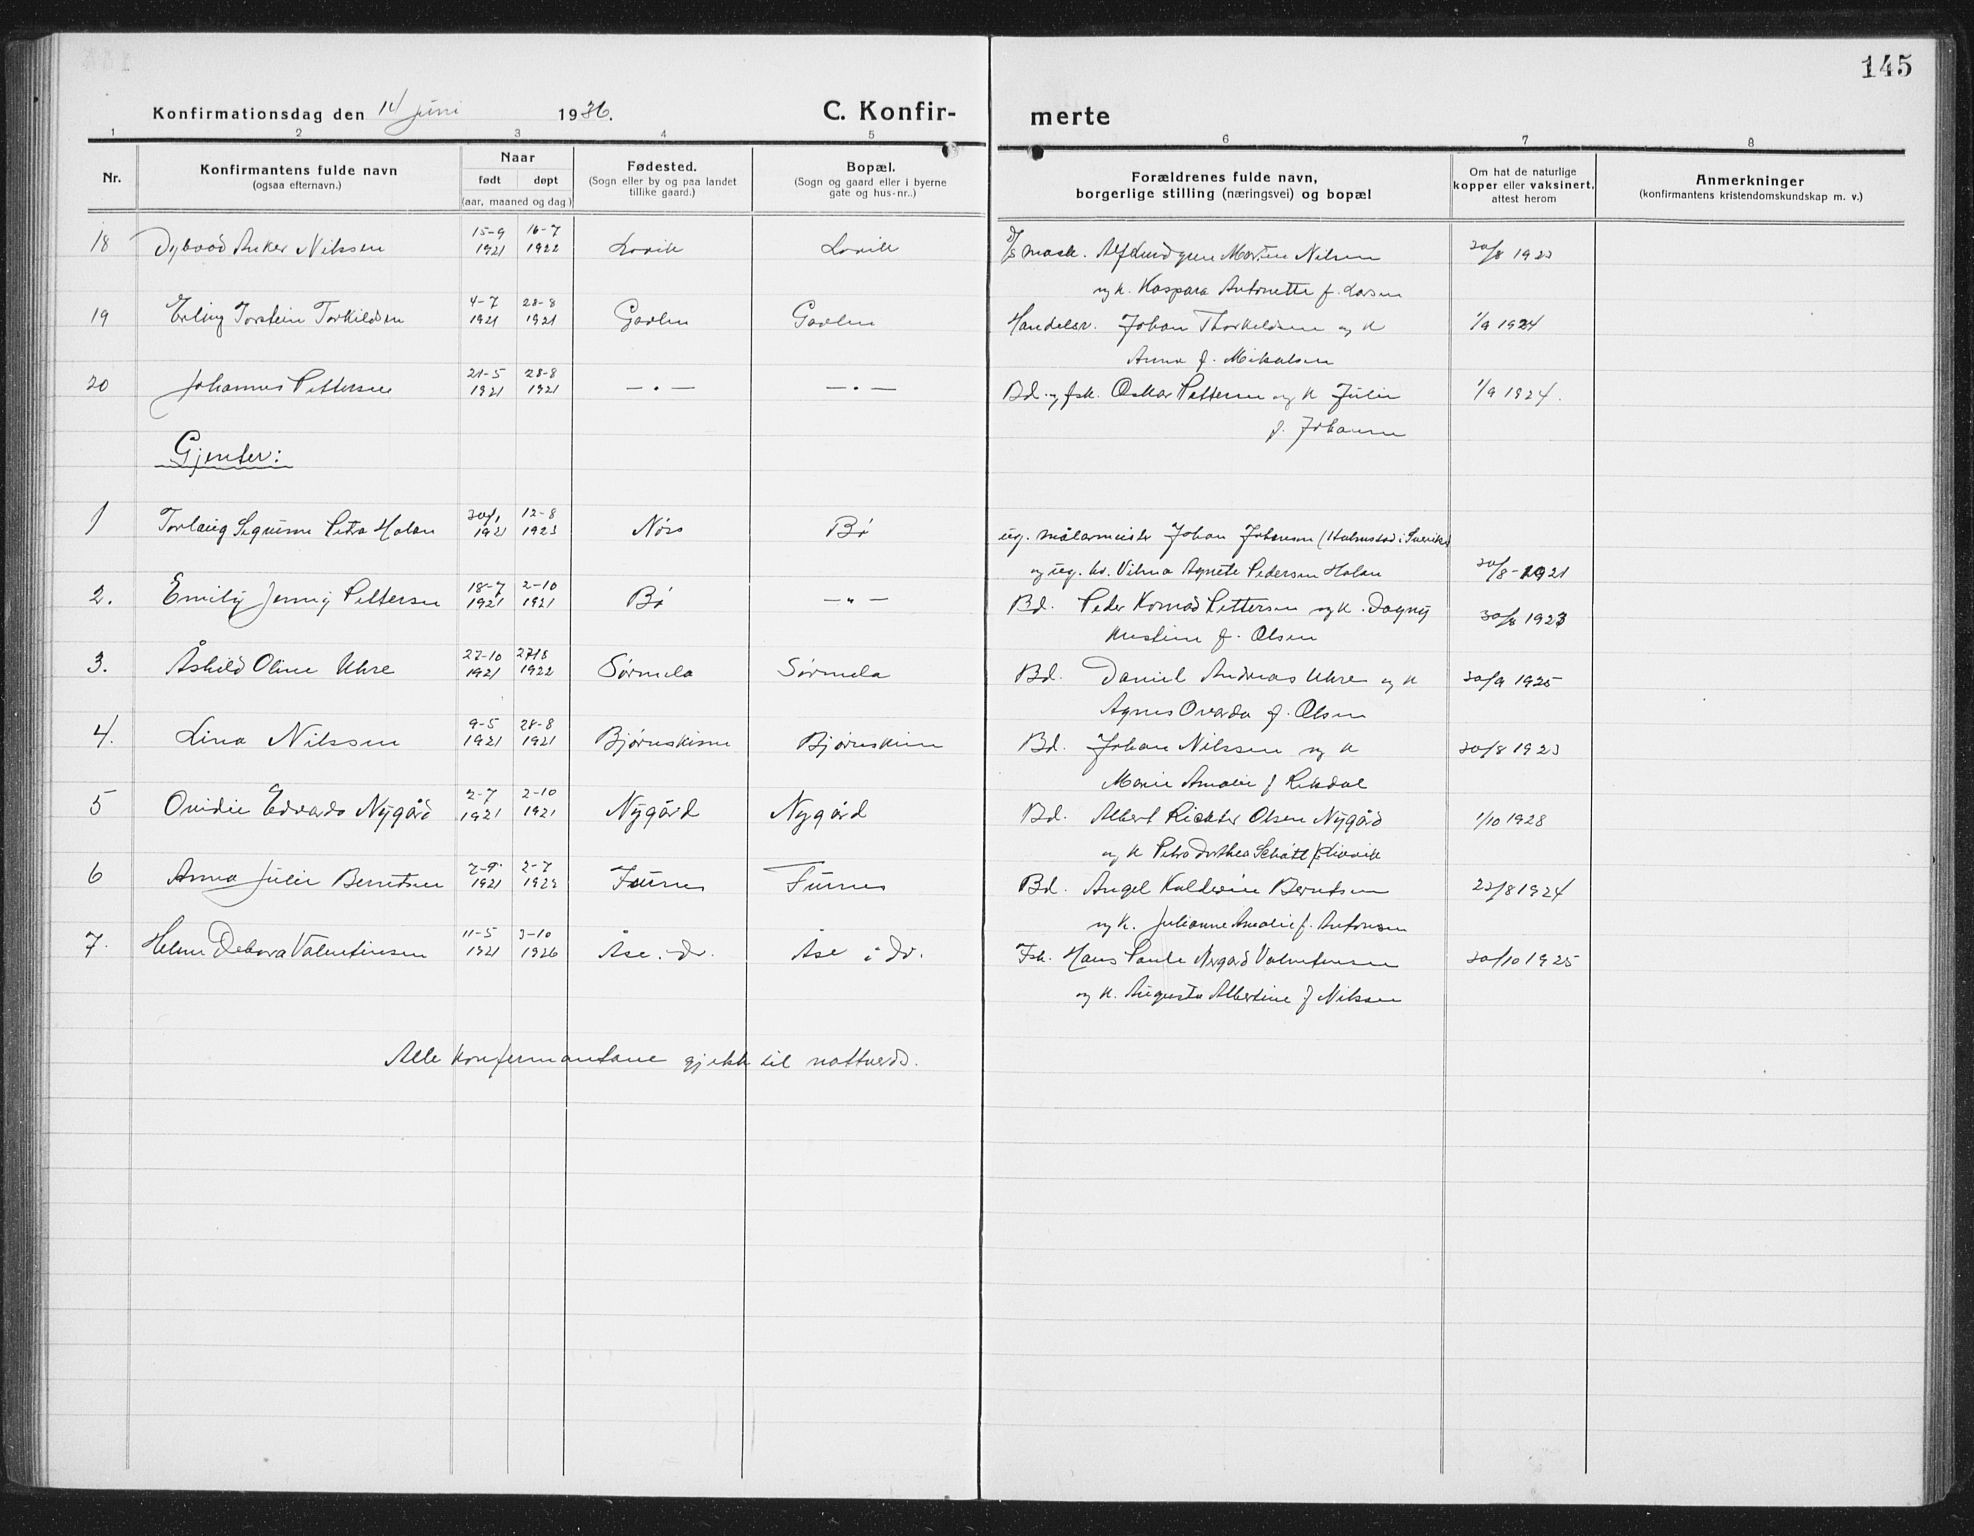 145
Konfirmationsdag den 14 juni 1936. C. Konfir- merte
1 2 3 4 5 6 7 8
Nr. Konfirmantens fulde navn (ogsaa efternavn.) Naar født døpt (aar, maaned og dag) Fødested. (Sogn eller by og paa landet tillike gaard.) Bopæl. (Sogn og gaard eller i byerne gate og hus-nr..) Forældrenes fulde navn, borgerlige stilling (næringsvei) og bopæl Om hat de naturlige kopper eller vaksinert, attest herom Anmerkninger (konfirmantens kristendomskundskap m. v.)
15-9 16-7
18 Anker Nilssen 1921 1922 Lovik Lovik mask. Alf Morten Nilsen
og k. Kaspara Antonette f. Larsen
4-7 28-8
19 Erling Torstein Torkildsen 1921 1921 Gavlen Gavlen Handelsr. Johan Thorkildsen og k 1/9 1924
Anna f. Mikalsen
21-5 28-8
20 Johannes Pettersen 1921 1921 — . — — . — Bd. og fsk. Oskar Pettersen og k Julie 1/9 1924.
f. Johansen
Gjenter:
12-8
1 Torlaug Sigrunn Petra Holan 1921 1923 Nøss Bø ug. målarmeister Johan Johansson (Halmstad i Sverike)
og ug. kv. Vilma Agnete Pedersen Holan 30/8-1921
18-7 2-10
2. Emily Jenny Pettersen 1921 1921 Bø — " — Bd. Peder Konrad Pettersen og k. Dagny 30/8 1923
Kristine f. Olsen
27-10 27/8
3. Åshild Oline Uhre 1921 1922 Sørmela Sørmela Bd. Daniel Andreas Uhre og k 30/9 1925
Agnes Ovarda f. Olsen
9-5 28-8
4. Lina Nilssen 1921 1921 Bjørnskinn Bjørnskinn Bd. Johan Nilssen og k 30/8 1923
Marie Amalie f
2-7 2-10
5 Ovidie Edvarda Nygård 1921 1921 Nygård Nygård Bd. Albert Rickter Olsen Nygård 1/10 1928
og k Petra Dorthea
2-9 2-7
6 Anna Julie Berntsen 1921 1922 Furnes Furnes Bd. Angel Berntsen 22/8 1924
og k. Julianne Amalie f. Antonsen
11-5 3-10
7. Helene Debora Valentinsen 1921 1926 Åse i Dv. Åse i Dv. Fsk. Hans Paule Nergård Valentinsen 30/10 1925
og k. Augusta Albertine f Nilssen
Alle konfermantane gjekk til nattverd.